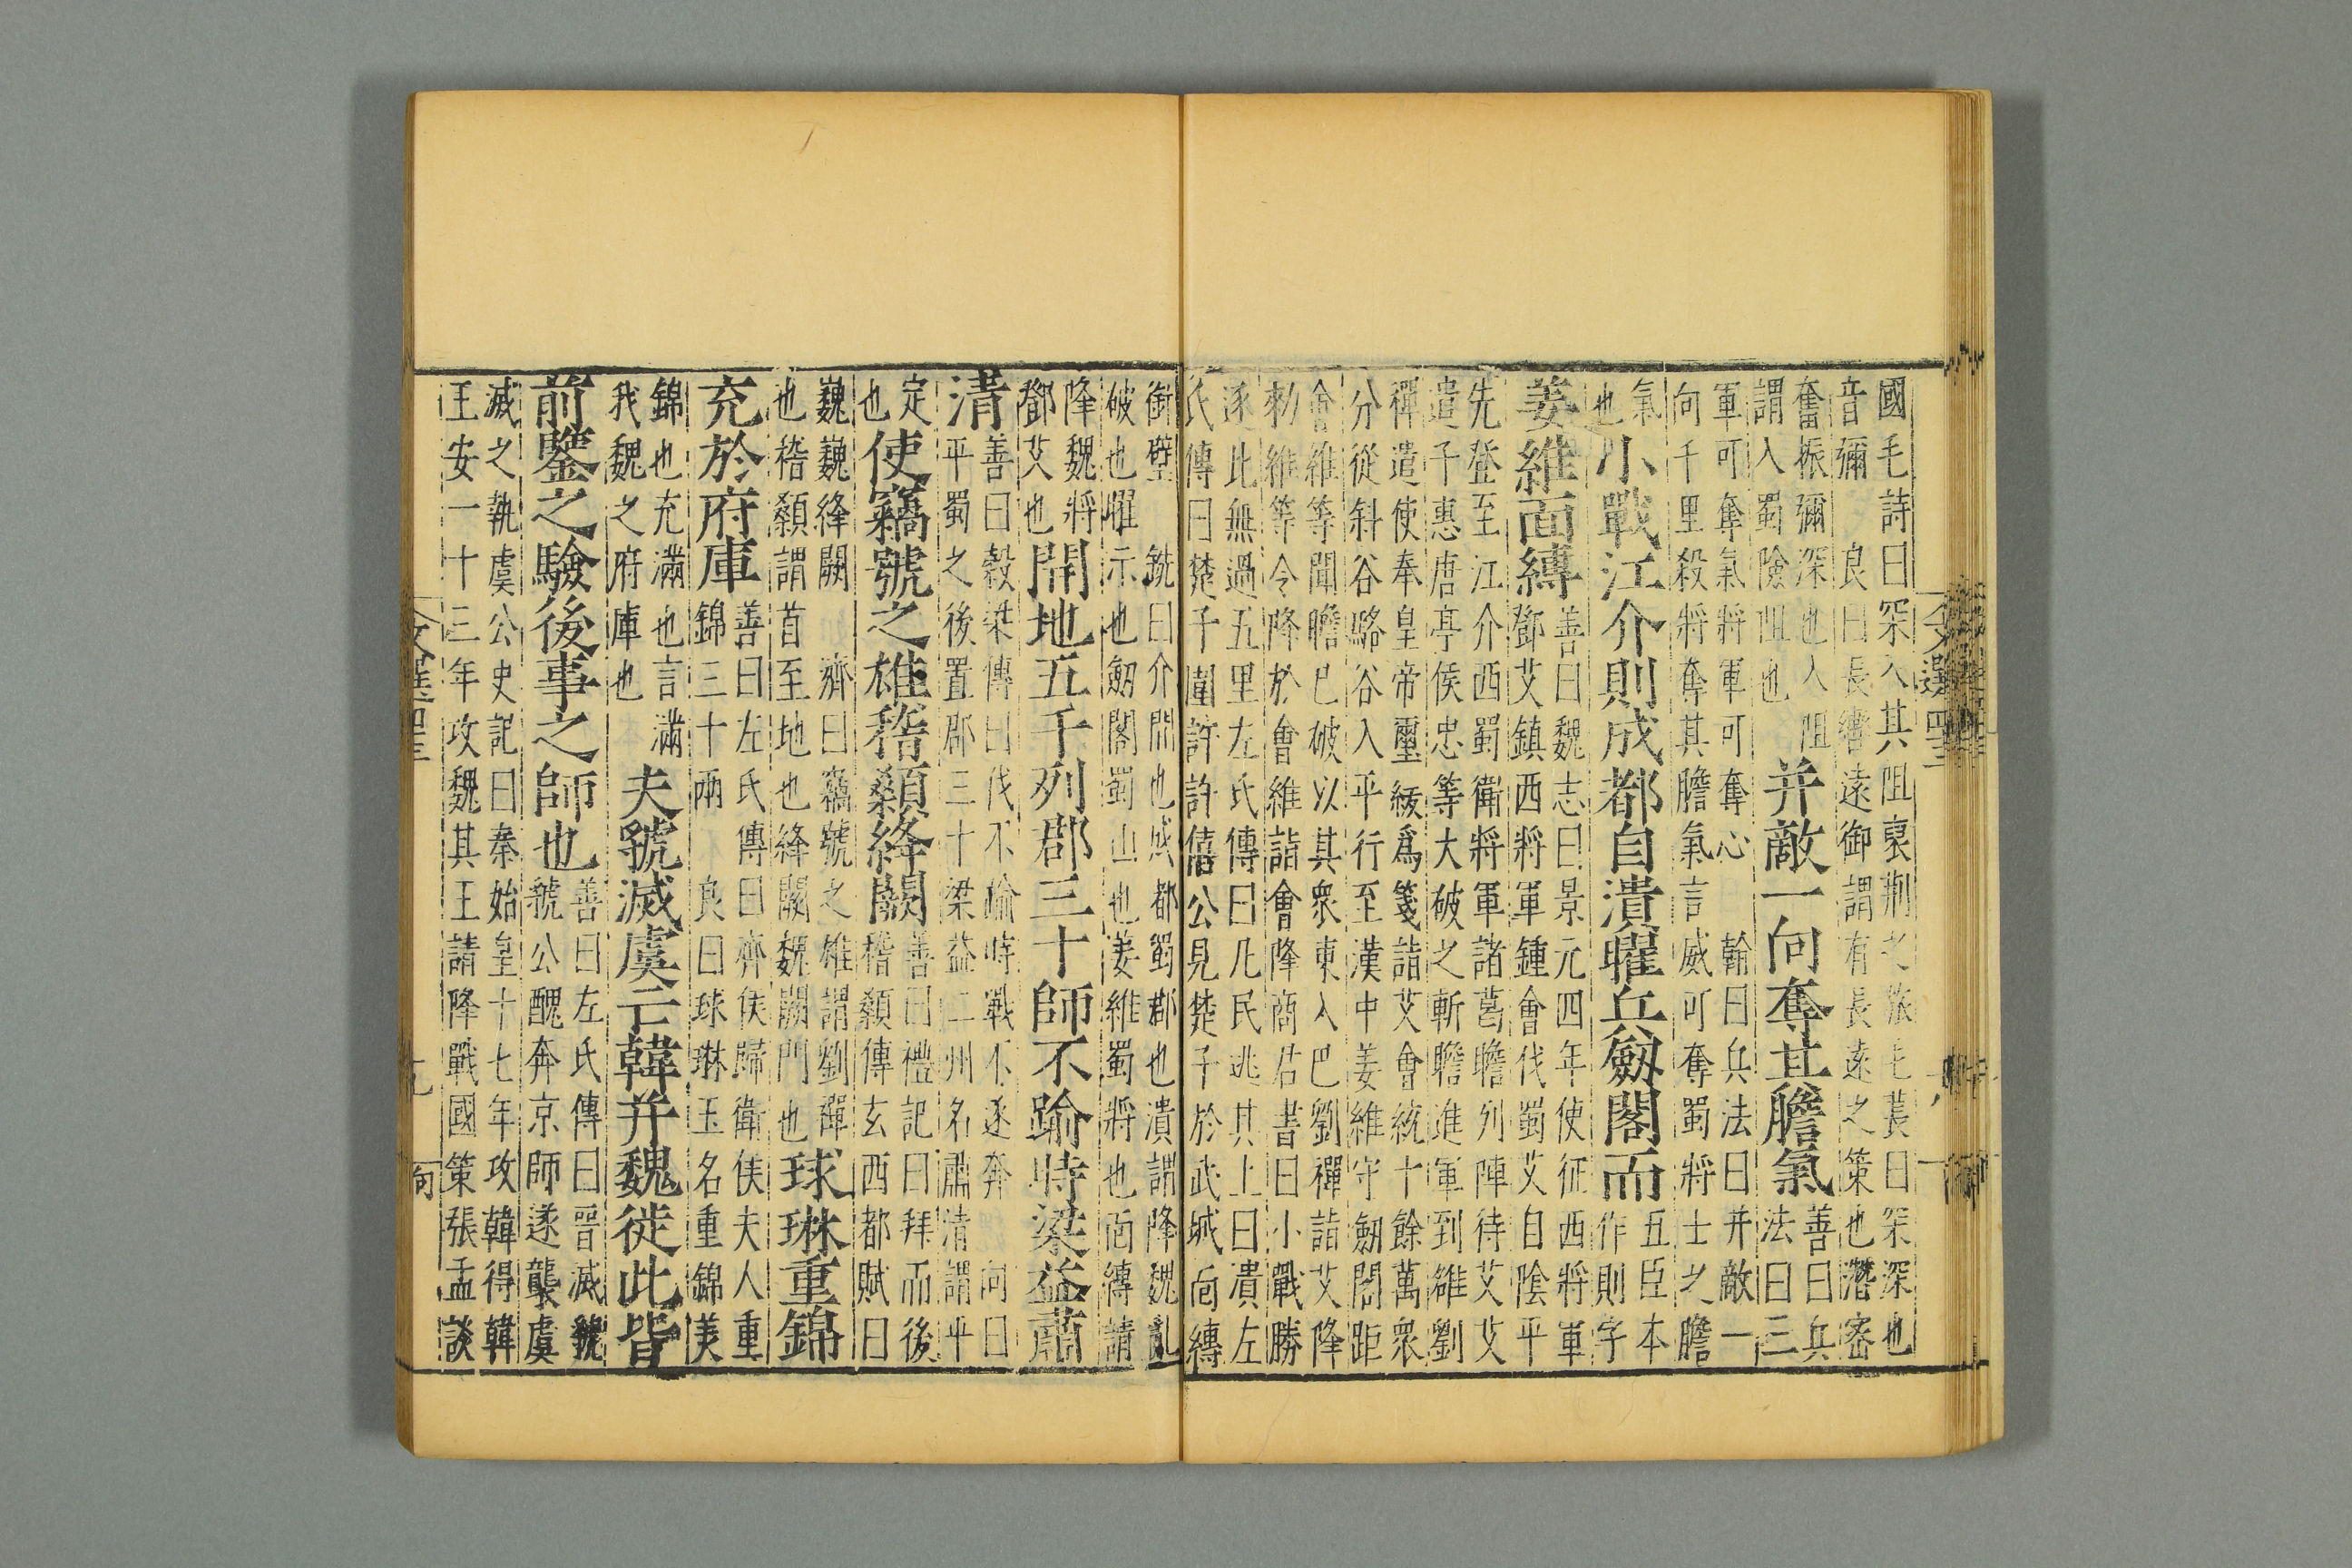 國毛詩曰罙入其阻裒荆之旅毛萇曰罙深也
音彌　良曰長轡遠御謂有長遠之策也潛密
奮振彌深也入阻
謂入蜀險阻也
并敵一向奪其膽氣
善曰兵
法曰三
軍可奪氣將軍可奪心　翰曰兵法曰并敵一
向千里殺將奪其膽氣言威可奪蜀將士之膽
氣
也
小戰江介則成都自潰曜兵劒閣而
五臣本
作則字
姜維面縛
善曰魏志曰景元四年使征西將軍
鄧艾鎮西將軍鍾會伐蜀艾自陰平
先登至江介西蜀衛將軍諸葛瞻列陣待艾艾
遣子惠唐亭侯忠等大破之斬瞻進軍到雒劉
禪遣使奉皇帝璽綬爲箋詣艾會統十餘萬衆
分從斜谷駱谷入平行至漢中姜維守劒閣距
會維等聞瞻已破以其衆東入巴劉禪詣艾降
勑維等令降於會維詣會降商君書曰小戰勝
逐北無過五里左氏傳曰凡民逃其上曰潰左
氏傳曰楚子圍許許僖公見楚子於武城面縛
銜璧　銑曰介間也成都蜀郡也潰謂降魏亂
破也曜示也劒閣蜀山也姜維蜀將也面縛請
降魏將
鄧艾也
開地五千列郡三十師不踰時梁益肅
清
善曰穀梁傳曰伐不踰時戰不逐奔　向曰
平蜀之後置郡三十梁益二州名肅清謂平
定
也
使竊號之雄稽顙絳闕
善曰禮記曰拜而後
稽顙傳玄西都賦曰
巍巍絳闕　濟曰竊號之雄謂劉禪
也稽顙謂首至地也絳闕魏闕門也
球琳重錦
充於府庫
善曰左氏傳曰齊侯歸衛侯夫人重
錦三十兩　良曰球琳玉名重錦美
錦也充滿也言滿
我魏之府庫也
夫虢滅虞亡韓并魏徙此皆
前鑒之驗後事之師也
善曰左氏傳曰晉滅虢
虢公醜奔京師遂襲虞
滅之執虞公史記曰秦始皇十七年攻韓得韓
王安一十三年攻魏其王請降戰國策張孟談